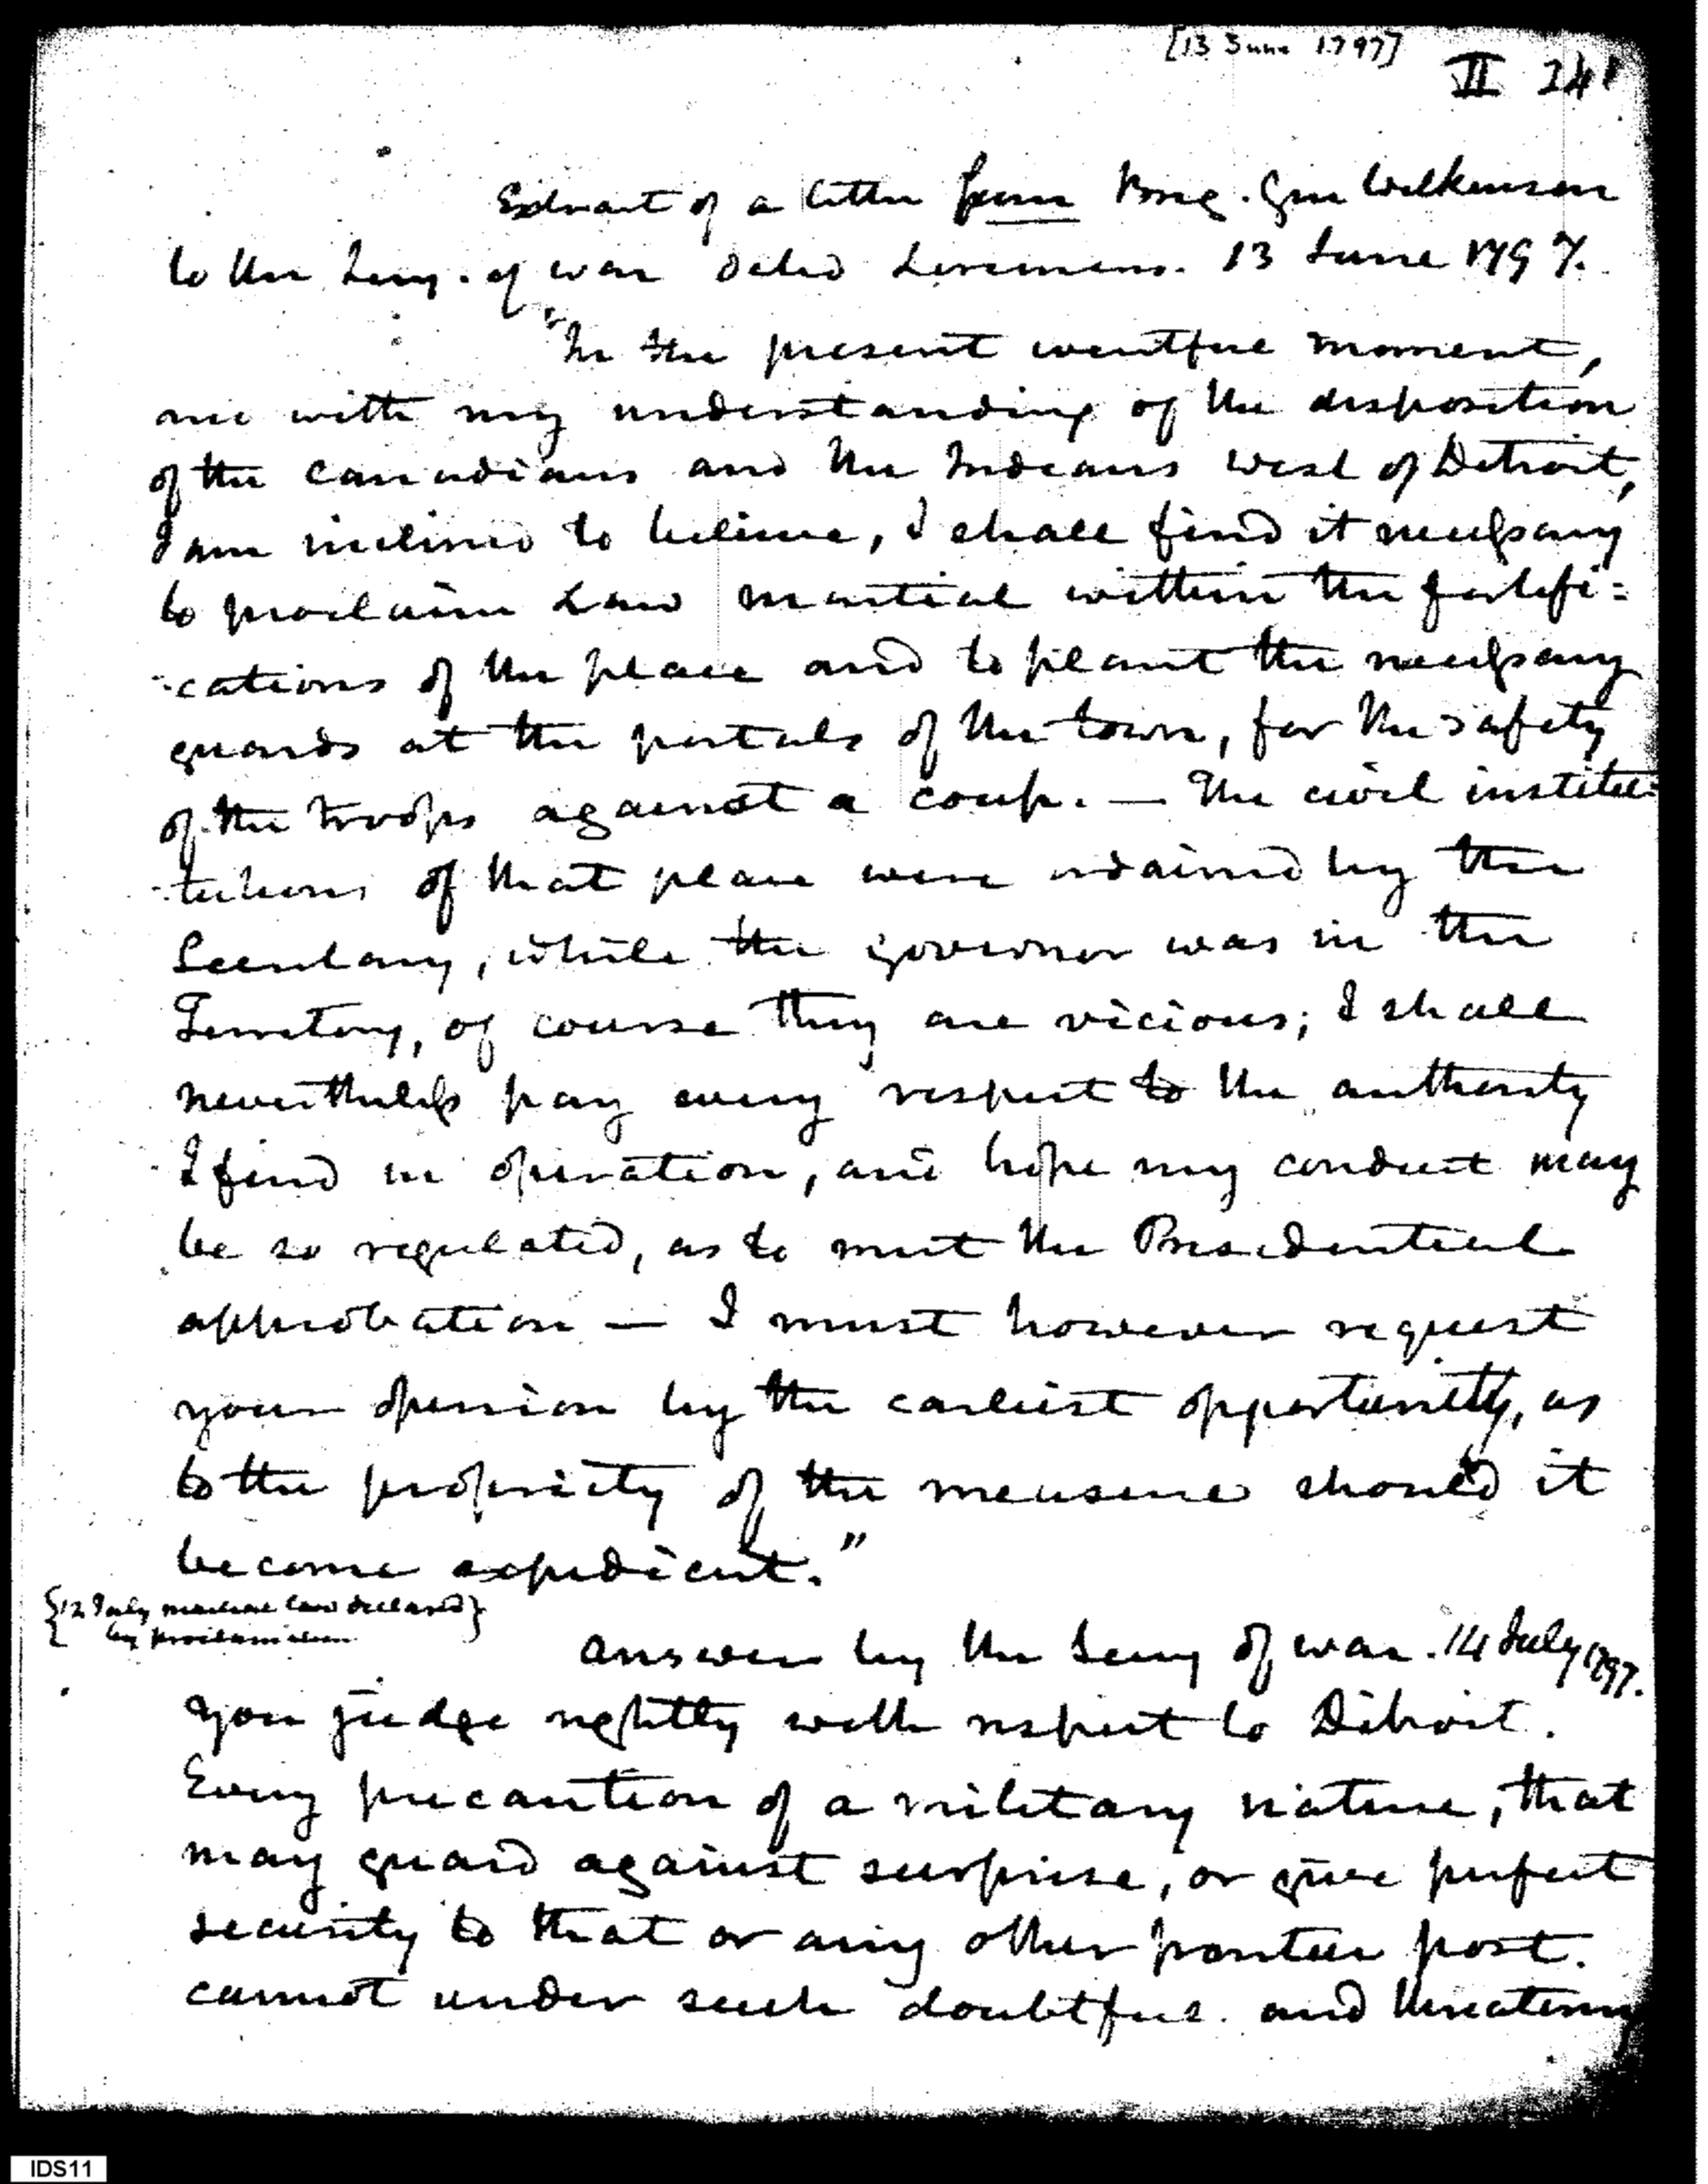 [13 June 1797]
VI 241
Extract of a letter from Brig. Gen Wilkinson
to the Secy. of war dated 13 June 1797.
"In the present eventful moment,
and with my understanding of the disposition
of the Canadians and the Indians west of Detroit,
I am inclined to believe, I shall find it necessary
to proclaim Law martial within the fortifi=
-cations of the place and to plant the necessary
guards at the portals of the town, for the safety
of the troops against a coup. — The civil institu-
-tutions of that place were ordained by the
Secretary, while the governor was in the
Territory, of course they are vicious; I shall
nevertheless pay every respect to the authority
I find in operation, and hope my conduct may
be so regulated, as to meet the Presidential
approbation — I must however request
your opinion by the earliest opportunity, as
to the propriety of the measure should it
become expedient."
{12 July martial law declared}
{by proclamation
Answer by the Secy of war. 14 July 1797.
You judge rightly with respect to Detroit.
Every precaution of a military nature, that
may guard against surprise, or give perfect
security to that or any other frontier post.
cannot under such doubtful and threatening
IDS11